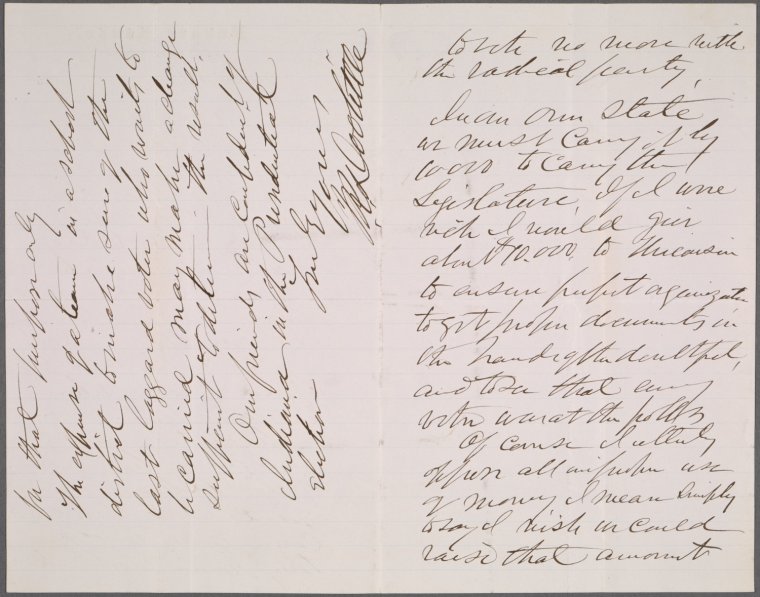 to vote no more with
the radical party,
In our own State
we must carry it by
10000 to carry the
Legislature. If I were
rich I would give
about $10.000. to Wisconsin
to ensure perfect organization
to get proper documents in
the hands of the doubtful,
and to see that every
voter was at the polls
Of course I utterly
oppose all improper use
of money I mean simply
to say I wish we could
raise that amount
for that purpose only
The expense of a team in a school
district to make sure of the
last laggard voter who waits to
be carried may make a change
sufficient to determine the result.
Our friends are confident of
Indiana in the Presidential
election
Yours
J R Doolittle